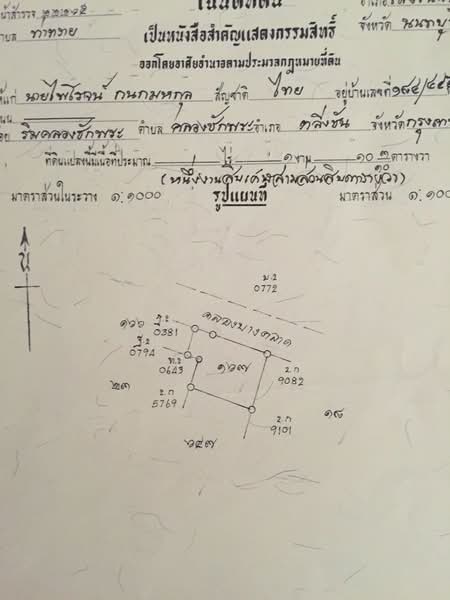 โฉนดที่ดิน
น้าสำรวจ ๒๒๒๑๕
ตำบล ท่าทราย
เป็นหนังสือสำคัญแสดงกรรมสิทธิ์
จังหวัด นนทบุ
ออกโดยอาศัยอำนาจตามประมวลกฎหมายที่ดิน
ให้แก่ นายไพโรจน์ กนกมหกุล สัญชาติ ไทย อยู่บ้านเลขที่
ริมคลองชักพระ ตำบล คลองชักพระ อำเภอ ตลิ่งชัน จังหวัด กรุงเท
ที่ดินแปลงนี้มีเนื้อที่ประมาณ ไร่ ๑ งาน ๑๐ ๓/๑๐ ตารางวา
(หนึ่งงานสิบเศษสามส่วนสิบตารางวา)
มาตราส่วนในระวาง ๑:๑๐๐๐
รูปแผนที่
มาตราส่วน ๑:๑๐๐
น
น.๒
0772
คลองบางตลาด
๑๖๖
0381
0794
0643
๑๖๗
๒.ก
9082
๒๓
๒.ก
5769
๑๘
๒.ก
9101
๖๔๗